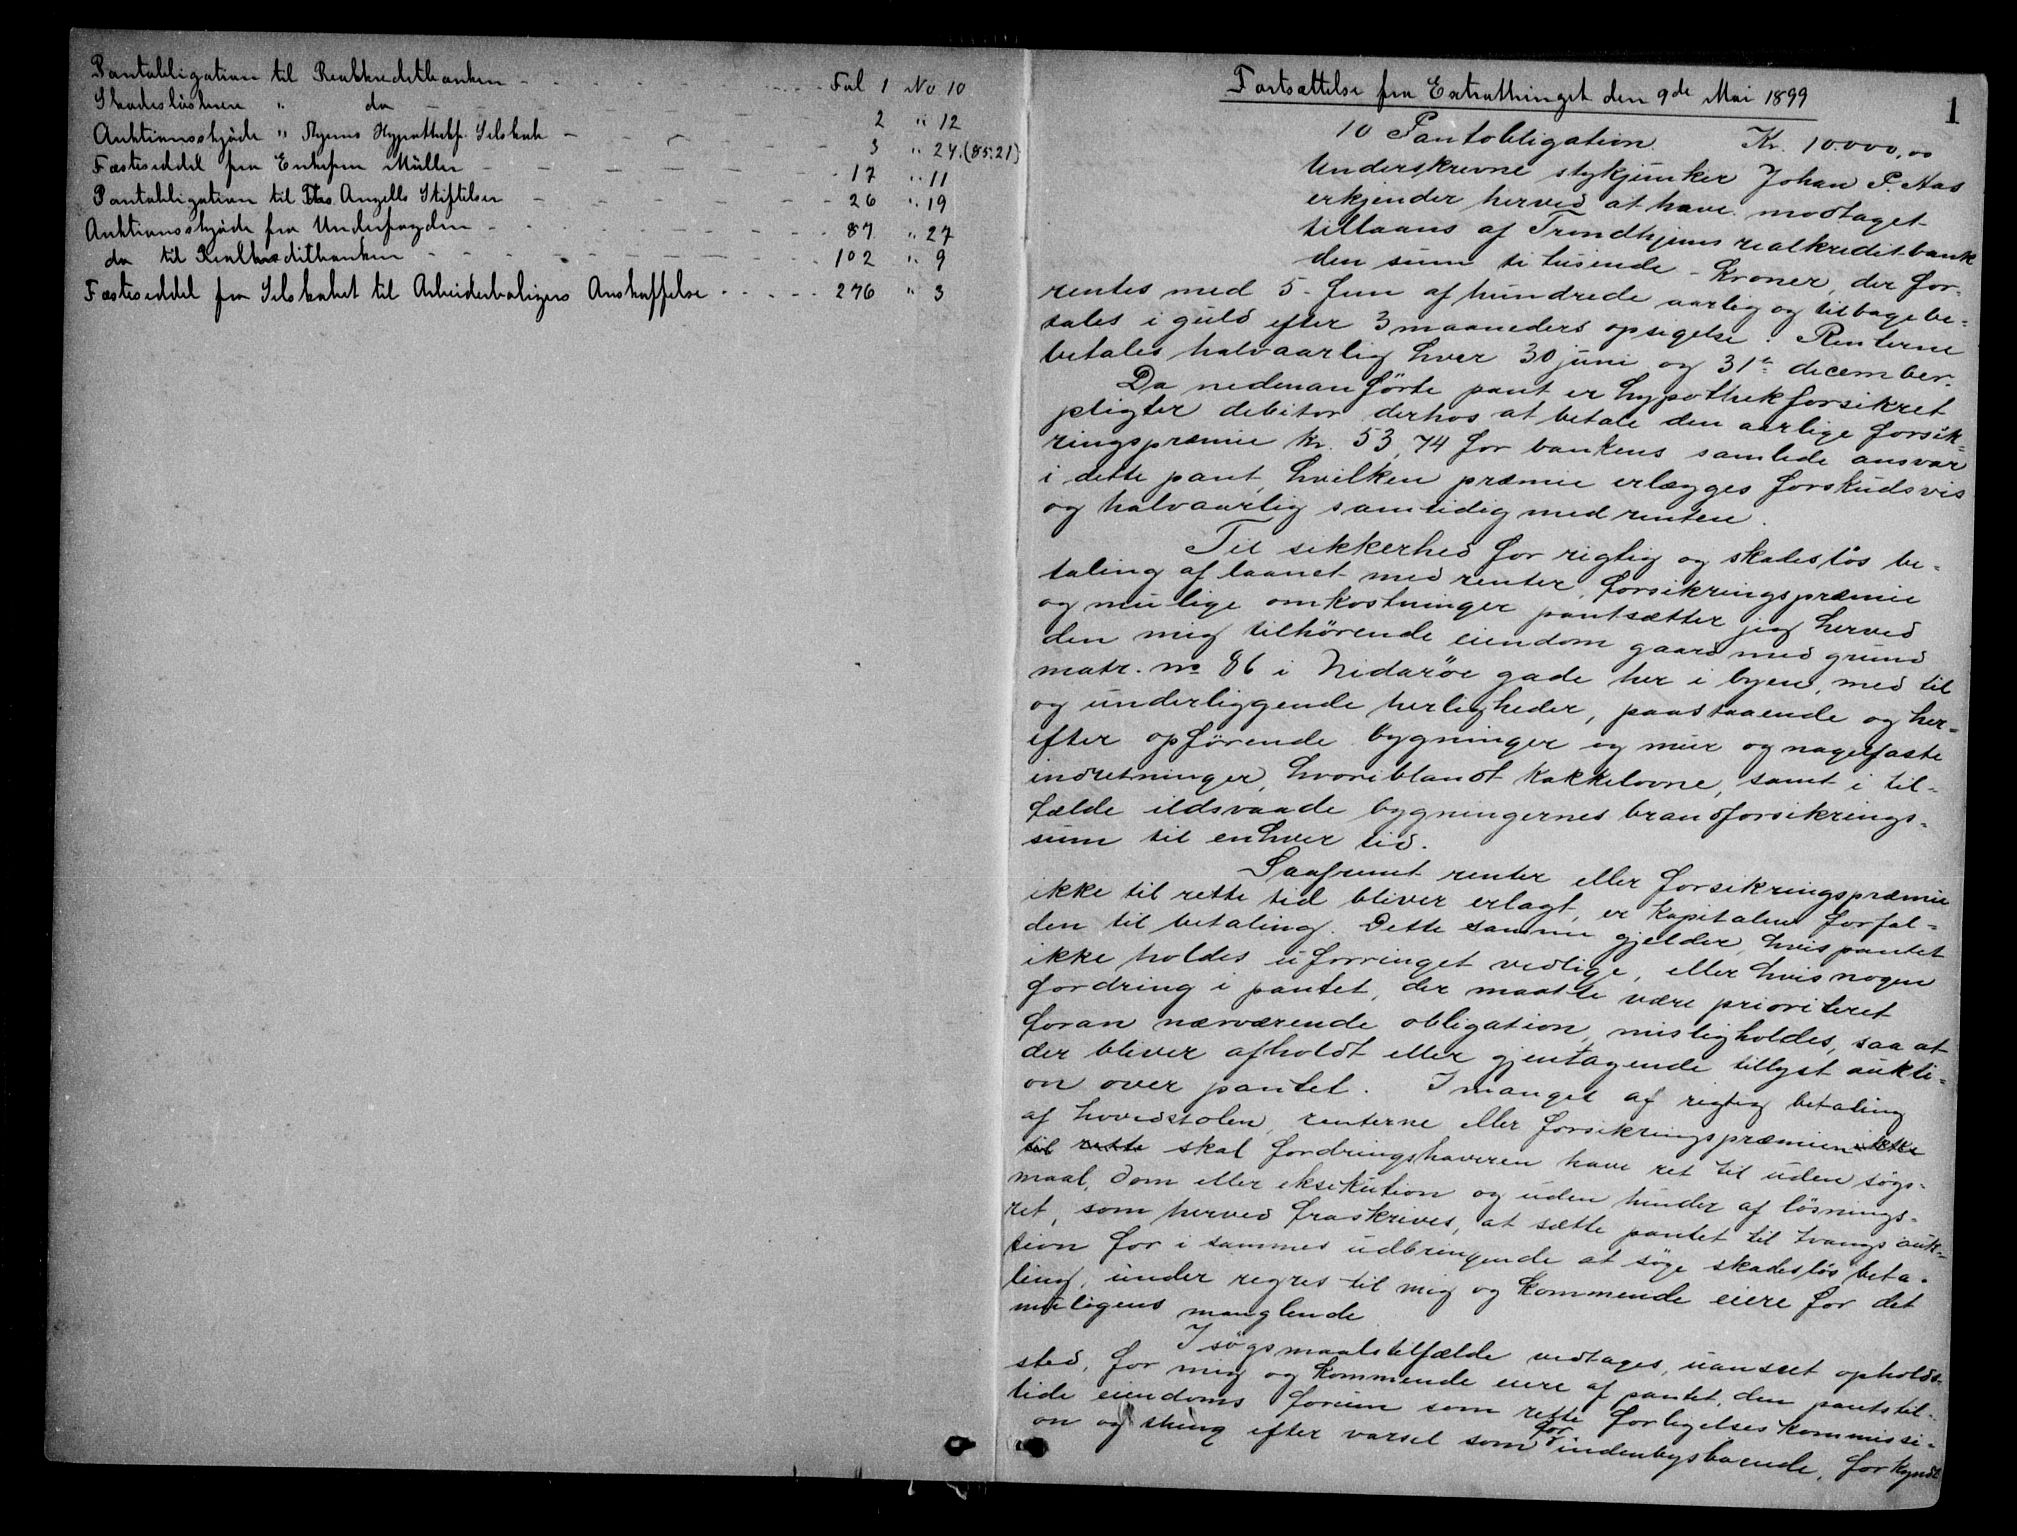 Pantobligation til Realkreditbanken - - - - - Fol 1 No 10
Skadesløsbrev " do - - - - 2 " 12
Auktionsskjøde " Byens Hypothekf. Selskab - - - 3 " 27.(85.21)
Fæsteseddel fra Enkefru Müller - - - - 17 " 11
Pantobligation til Ths. Angells Stiftelser - - - - 26 " 19
Auktionsskjøde fra Underfogden - - - - 87 " 27
do til Realkreditbanken - - - - 102 " 9
Fæsteseddel fra Selskabet til Arbeiderboligers Anskaffelse - - - - 276 " 3
Fortsættelse fra Extrathinget den 9de Mai 1899
1
10 Pantobligation Kr. 10.000,00
Underskrevne stykjunker Johan P. Aas
erkjender herved at have modtaget
tillaans af Trondhjems realkreditbank
den sum ti tusende - Kroner, der for-
rentes med 5 - fem af hundrede aarlig og tilbagebe-
tales i guld efter 3 maaneders opsigelse. Renterne
betales halvaarlig hver 30 juni og 31te december.
Da nedenanførte pant er hypothekforsikret
pligter debitor derhos at betale den aarlige forsik-
ringspræmie kr. 53,74 for bankens samlede ansvar
i dette pant, hvilken præmie erlægges forskudsvis
og halvaarlig samtidig med renten.
Til sikkerhed for rigtig og skadesløs be-
taling af laanet med renter, forsikringspræmie
og mulige omkostninger pantsætter jeg herved
den mig tilhørende eiendom gaard med grund
matr. no 86 i Nidarøe gade her i byen, med til
og underliggende herligheder, paastaaende og her-
efter opførende bygninger og mur og nagelfaste
indretninger, hvoriblandt kakkelovne, samt i til-
fælde ildsvaade bygningernes brandforsikrings-
sum til enhver tid.
Saafremt renter eller forsikringspræmie
ikke til rette tid bliver erlagt, er kapitalen forfal-
den til betaling. Dette samme gjelder, hvis pantet
ikke holdes uforringet vedlige, eller hvis nogen
fordring i pantet, der maatte være prioriteret
foran nærværende obligation, misligholdes, saa at
der bliver afholdt eller gjentagende tillyst aukti-
on over pantet. I mangel af rigtig betaling
af hovedstolen, renterne eller forsikringspræmien ikke
til rette skal fordringshaveren have ret til uden søgs-
maal, dom eller eksekution og uden hinder af løsnings-
ret, som herved fraskrives, at sætte pantet til tvangsauk-
tion for i sammes udbringende at søge skadesløs beta-
ling, under regres til mig og kommende eiere for det
muligens manglende
I søgsmaalstilfælde vedtages, uanseet opholds-
sted, for mig og kommende eiere af pantet, den pantstil-
lede eiendoms forum som rette forligelseskommissi-
on og thing efter varsel som for indenbysboende, forkyndt